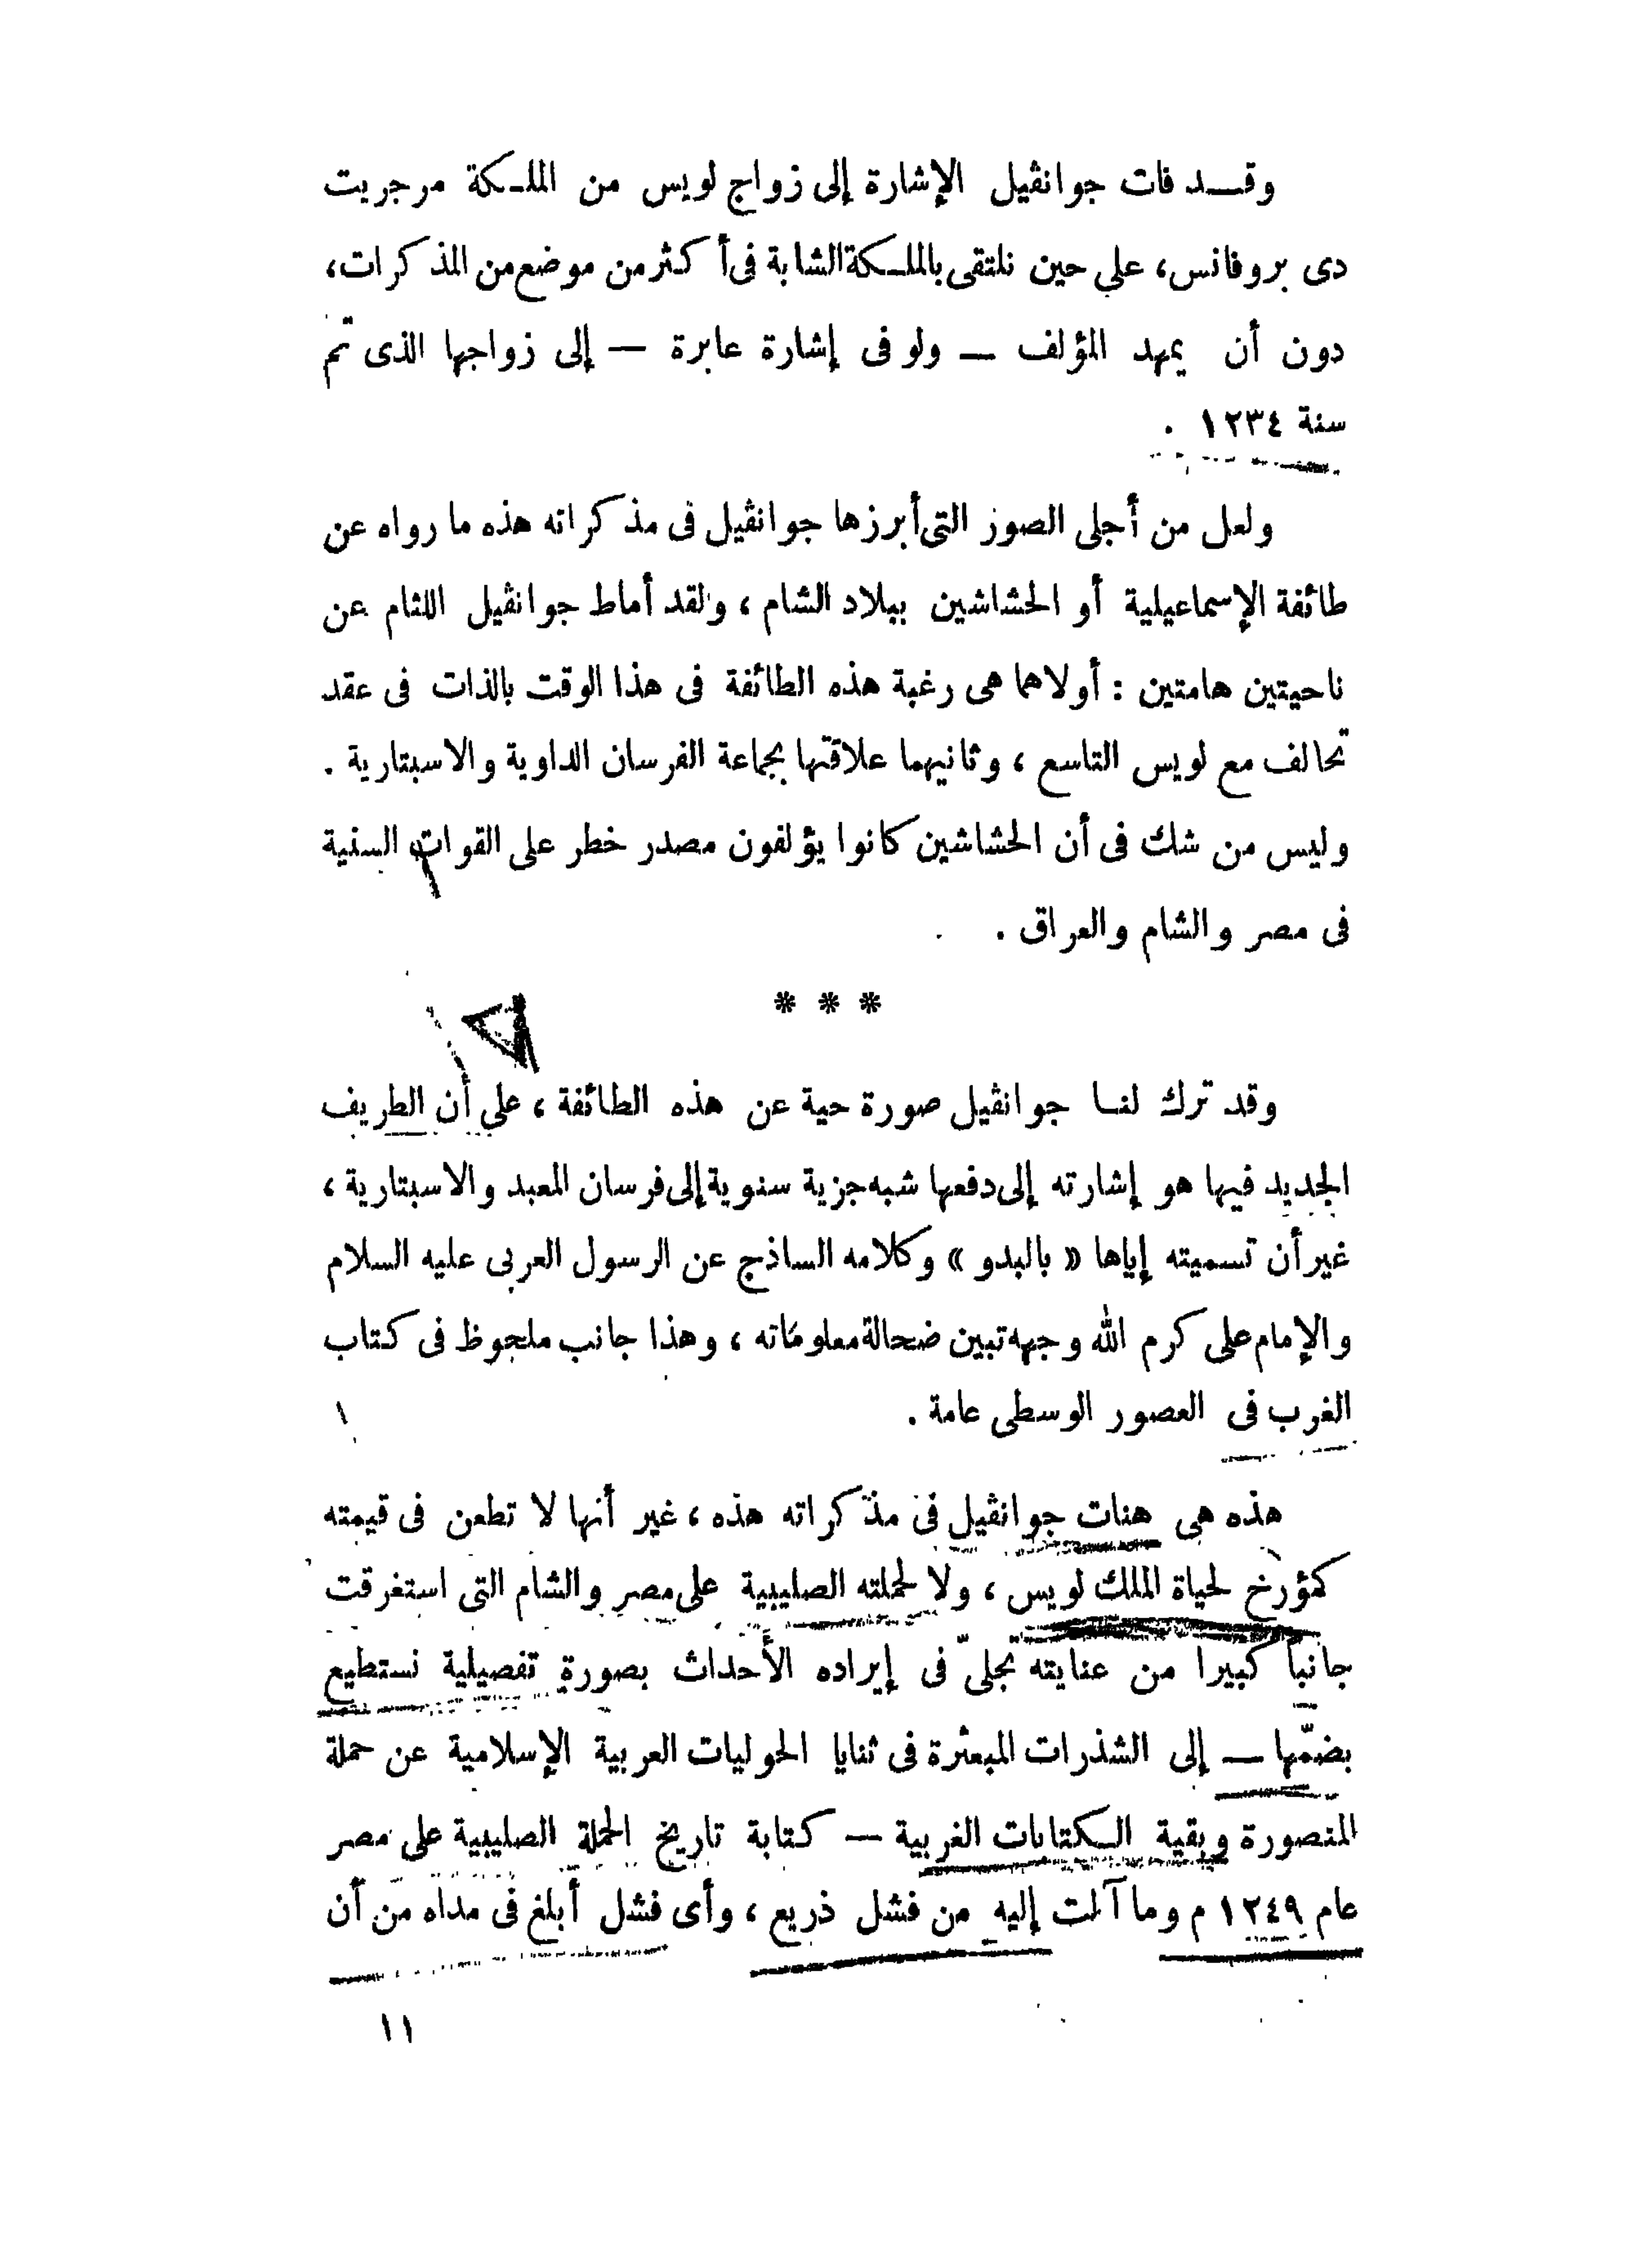 وقد فات جوانڤيل الإشارة إلى زواج لويس من الملكة مرجريت
دى بروفانس، على حين نلتقى بالملكة الشابة فى أكثر من موضع من المذكرات،
دون أن يمهد المؤلف — ولو فى إشارة عابرة — إلى زواجها الذى تم
سنة ١٢٣٤ .
ولعل من أجلى الصور التى أبرزها جوانڤيل فى مذكراته هذه ما رواه عن
طائفة الإسماعيلية أو الحشاشين ببلاد الشام ، ولقد أماط جوانڤيل اللثام عن
ناحيتين هامتين : أولاهما هى رغبة هذه الطائفة فى هذا الوقت بالذات فى عقد
تحالف مع لويس التاسع ، وثانيهما علاقتها بجماعة الفرسان الداوية والاسبتارية .
وليس من شك فى أن الحشاشين كانوا يؤلفون مصدر خطر على القوات السنية
فى مصر والشام والعراق .
* * *
وقد ترك لنا جوانڤيل صورة حية عن هذه الطائفة ، على أن الطريف
الجديد فيها هو إشارته إلى دفعها شبه جزية سنوية إلى فرسان المعبد والاسبتارية ،
غير أن تسميته إياها « بالبدو » وكلامه الساذج عن الرسول العربى عليه السلام
والإمام على كرم الله وجهه تبين ضحالة معلوماته ، وهذا جانب ملحوظ فى كتاب
الغرب فى العصور الوسطى عامة .
هذه هى هنات جوانڤيل فى مذكراته هذه ، غير أنها لا تطعن فى قيمته
كمؤرخ لحياة الملك لويس ، ولا لحملته الصليبية على مصر والشام التى استغرقت
جانباً كبيرا من عنايته تجلىّ فى إيراده الأحداث بصورة تفصيلية نستطيع
بضمّها — إلى الشذرات المبعثرة فى ثنايا الحوليات العربية الإسلامية عن حملة
المنصورة وبقية الكتابات الغربية — كتابة تاريخ الحملة الصليبية على مصر
عام ١٢٤٩ م وما آلت إليه من فشل ذريع ، وأى فشل أبلغ فى مداه من أن
١١